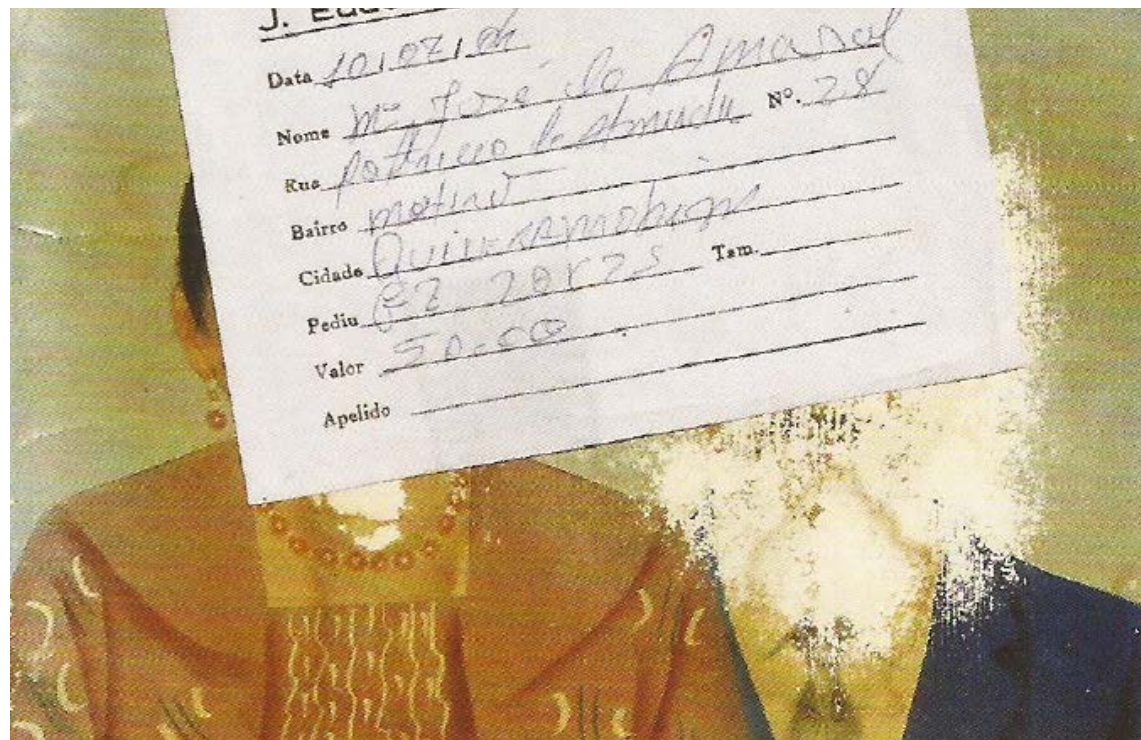 Data 10,07,01
Nome Mª José do Amaral
Rua de Almeida Nº. 28
Bairro
Cidade Quixeramobim
Pediu 02 20x25 Tam.
Valor 50.00
Apelido